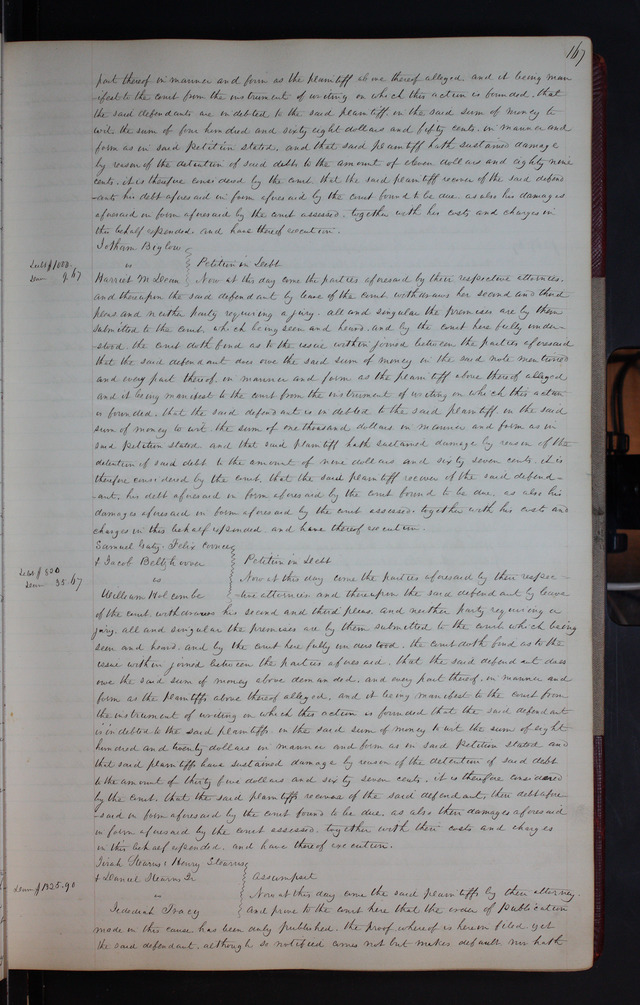 167
part thereof in manner and form as the plaintiff above thereof alleged. and it being man
-ifest to the court from the instrument of writing on which this action is founded. that
the said defendants are indebted to the said plaintiff. in the said sum of money to
wit the sum of four hundred and sixty eight dollars and fifty cents. in manner and
form as in said Petition stated. and that said plaintiff hath sustained damage
by reason of the detention of said debt to the amount of eleven dollars and eighty nine
cents. it is therefore considered by the court. that the said plaintiff recover of the said defend
-ants his debt aforesaid in form aforesaid by the court found to be due. as also his damages
aforesaid in form aforesaid by the court assessed. together with his costs and charges in
this behalf expended. and have thereof execution.
Jotham Bigelow
Debt $1000.
vs Petition in Debt
Dam 9.67
Harriet M Dean Now at this day come the parties aforesaid by their respective attornies.
and thereupon the said defendant by leave of the court withdraws her second and third
pleas and neither party requiring a jury. all and singular the premises are by them
submitted to the court. which being seen and heard. and by the court here fully under-
-stood. the court doth find as to the issue within joined between the parties aforesaid
that the said defendant does owe the said sum of money in the said note mentioned
and every part thereof. in manner and form as the plaintiff above thereof alleged
and it being manifest to the court from the instrument of writing on which this action
is founded. that the said defendant is indebted to the said plaintiff. in the said
sum of money to wit. the sum of one thousand dollars in manner and form as in
said Petition stated. and that said plaintiff hath sustained damage by reason of the
detention of said debt to the amount of nine dollars and sixty seven cents. it is
therefore considered by the court. that the said plaintiff recover of the said defend-
-ant. his debt aforesaid in form aforesaid by the court found to be due. as also his
damages aforesaid in form aforesaid by the court assessed. together with his costs and
charges in this behalf expended. and have thereof execution.
Samuel Gaty. Felix
& Jacob Beltzhoover Petition in Debt
Debt $ 820
vs Now at this day come the parties aforesaid by their respec-
Dam 35.67
William Holcombe -tive attornies and thereupon the said defendant by leave
of the court withdraws his second and third pleas. and neither party requiring a
jury. all and singular the premises are by them submitted to the court which being
seen and heard. and by the court here fully understood. the court doth find as to the
issue within joined between the parties aforesaid. that the said defendant does
owe the said sum of money above demanded. and every part thereof, in manner and
form as the plaintiffs above thereof alleged. and it being manifest to the court from
the instrument of writing on which this action is founded that the said defendant
is indebted to the said plaintiffs. in the said sum of money to wit the sum of eight
hundred and twenty dollars in manner and form as in said Petition stated and
that said plaintiffs have sustained damage by reason of the detention of said debt
to the amount of thirty five dollars and sixty seven cents. it is therefore considered
by the court. that the said plaintiffs recover of the said defendant, their debt afore
-said in form aforesaid by the court found to be due. as also their damages aforesaid
in form aforesaid by the court assessed. together with their costs and charges
in this behalf expended. and have thereof execution.
Isaiah Stearns. Henry Stearns
& Daniel Stearns Jr Assumpsit
Dam $1325.90
vs Now at this day come the said plaintiffs by their attorney.
Jedediah Tracy and prove to the court here that the order of Publication
made in this cause has been duly published. the proof whereof is herein filed yet
the said defendant. although so notified comes not but makes default nor hath